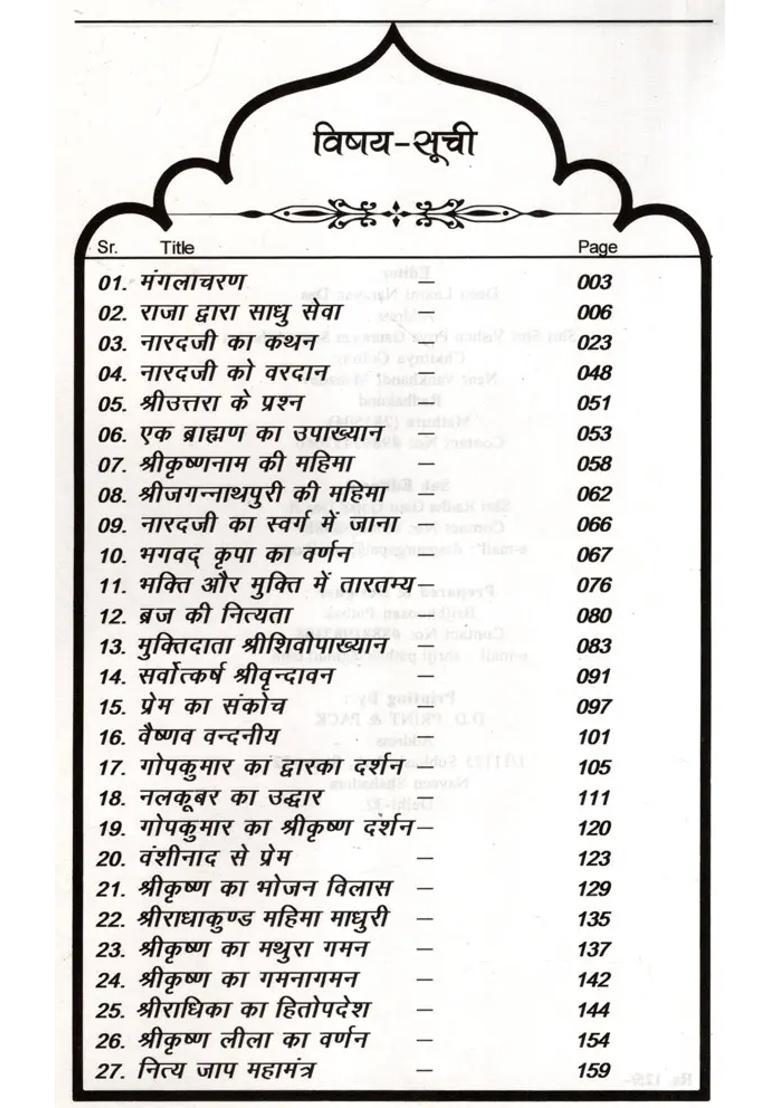 विषय-सूची
Sr. Title Page
01. मंगलाचरण — 003
02. राजा द्वारा साधु सेवा — 006
03. नारदजी का कथन — 023
04. नारदजी को वरदान — 048
05. श्रीउत्तरा के प्रश्न — 051
06. एक ब्राह्मण का उपाख्यान — 053
07. श्रीकृष्णनाम की महिमा — 058
08. श्रीजगन्नाथपुरी की महिमा — 062
09. नारदजी का स्वर्ग में जाना — 066
10. भगवद् कृपा का वर्णन — 067
11. भक्ति और मुक्ति में तारतम्य — 076
12. ब्रज की नित्यता — 080
13. मुक्तिदाता श्रीशिवोपाख्यान — 083
14. सर्वोत्कर्ष श्रीवृन्दावन — 091
15. प्रेम का संकोच — 097
16. वैष्णव वन्दनीय — 101
17. गोपकुमार का द्वारका दर्शन — 105
18. नलकूबर का उद्धार — 111
19. गोपकुमार का श्रीकृष्ण दर्शन — 120
20. वंशीनाद से प्रेम — 123
21. श्रीकृष्ण का भोजन विलास — 129
22. श्रीराधाकुण्ड महिमा माधुरी — 135
23. श्रीकृष्ण का मथुरा गमन — 137
24. श्रीकृष्ण का गमनागमन — 142
25. श्रीराधिका का हितोपदेश — 144
26. श्रीकृष्ण लीला का वर्णन — 154
27. नित्य जाप महामंत्र — 159